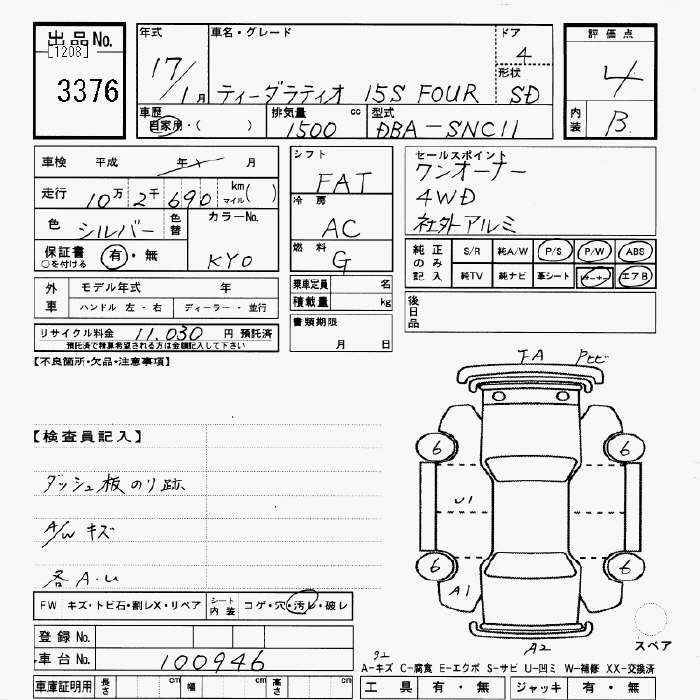 出品No.
[1208]
3376
年式
17/1月
車名・グレード
ティーダラティオ 15S FOUR
ドア
4
形状
SD
評価点
4
内装
B
車歴
自家用・( )
排気量
1500 cc
型式
DBA-SNC11
車検 平成 年 月
走行 10万 2千 690 km マイル( )
色 シルバー 色替
カラーNo.
KYO
保証書 有・無
○を付ける
シフト
FAT
冷房
AC
燃料
G
乗車定員 名
積載量 kg
書類期限
月 日
セールスポイント
ワンオーナー
4WD
社外アルミ
純正のみ記入
S/R 純A/W P/S P/W ABS
純TV 純ナビ 革シート エアB
後日品
外車 モデル年式 年
ハンドル 左・右 ディーラー・並行
リサイクル料金 11,030 円 預託済
預託済で精算希望される方は金額記入して下さい
【不良箇所・欠品・注意事項】
【検査員記入】
ダッシュ板のリ跡
A/W キズ
各A・U
FW キズ・トビ石・割レX・リペア
シート内装 コゲ・穴・汚レ・破レ
登録No.
車台No. 100946
車庫証明用 長さ cm 幅 cm 高さ cm
FA
6
6
U1
6
6
A1
A2
スペア
A-キズ C-腐食 E-エクボ S-サビ U-凹ミ W-補修 XX-交換済
工具 有・無 ジャッキ 有・無